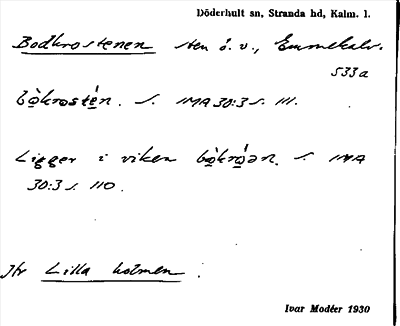 Döderhult sn, Stranda hd, Kalm. l.
Bodkrostenen sten ö. v., Emmekalv.
533a
bo̱krostén. S. IMA 30:3 s. 111.
Ligger i viken bo̱kro̱ən. S. IMA
30:3 s. 110.
Jfr Lilla holmen.
Ivar Modéer 1930